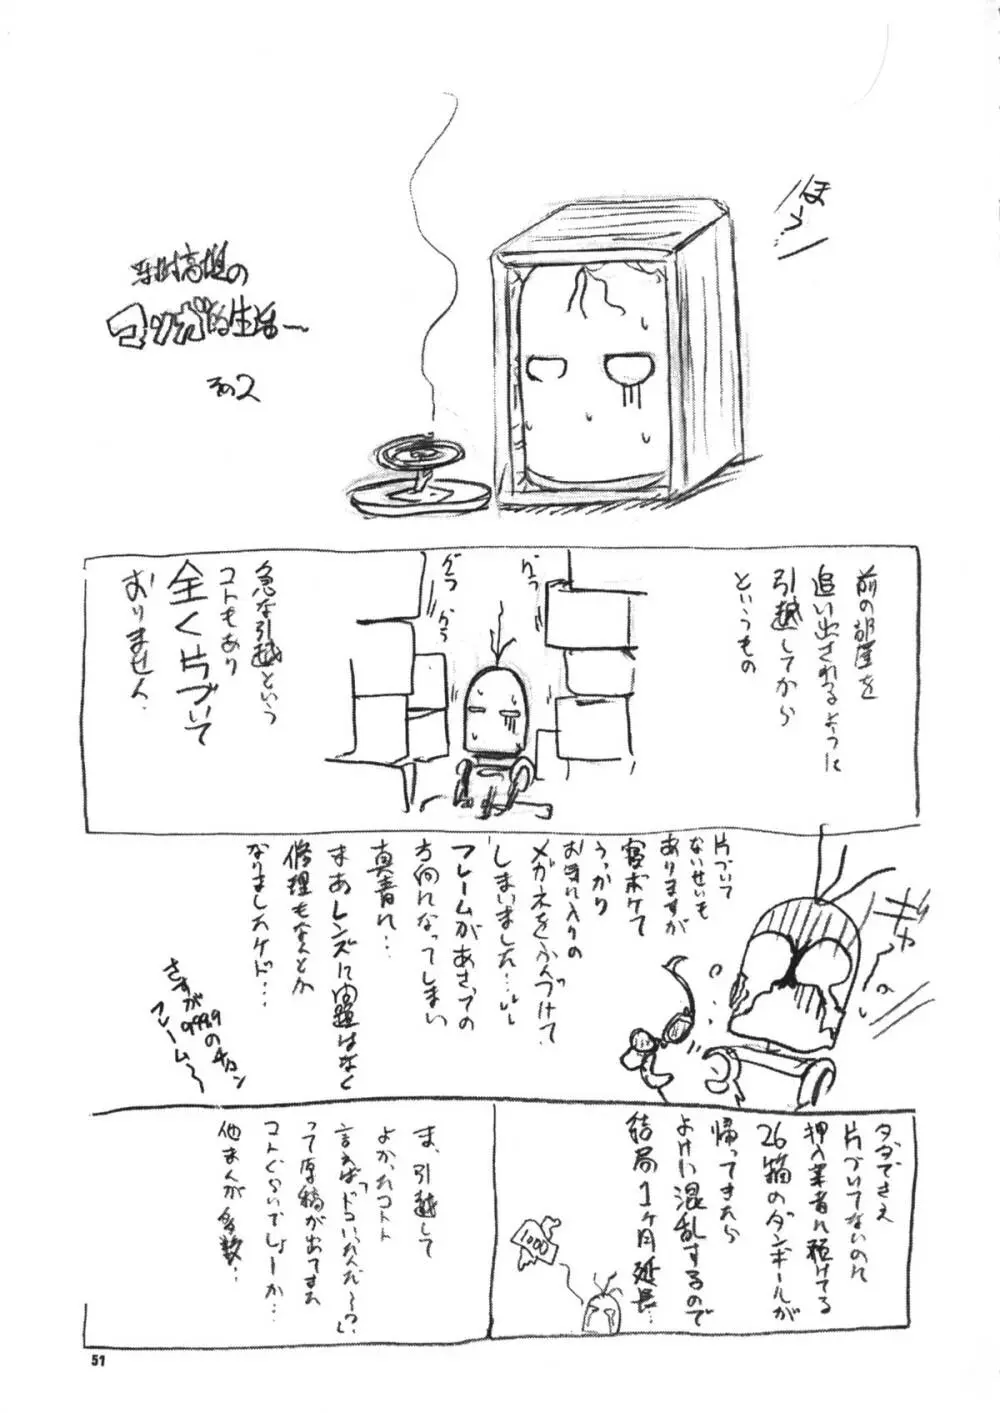 ほーっ
マンガ的生活〜
その2
前の部屋を
追い出されるように
引越してから
というもの
ぐらっ
ぐらっ
からっ
急な引越という
コトもあり
全く片づいて
おりません.
片づいて
ないせいも
ありますが
寝ボケて
うっかり
お気に入りの
メガネをふんづけて
しまいました…
フレームがあさっての
方向になってしまい
真青に…
まあレンズに問題はなく
修理もなんとか
なりましたケド…
さすが999.9のチタン
フレーム〜
ギャーっ
タダでさえ
片づいてないのに
押入業者に預けてる
26箱のダンボールが
帰ってきたら
よけい混乱するので
結局1ヶ月延長…
1000
ま、引越して
よかったコトと
言えば「ドコいったんだ〜!?」
って原稿が出てきた
コトぐらいでしょーか…
他まんが多数…
51